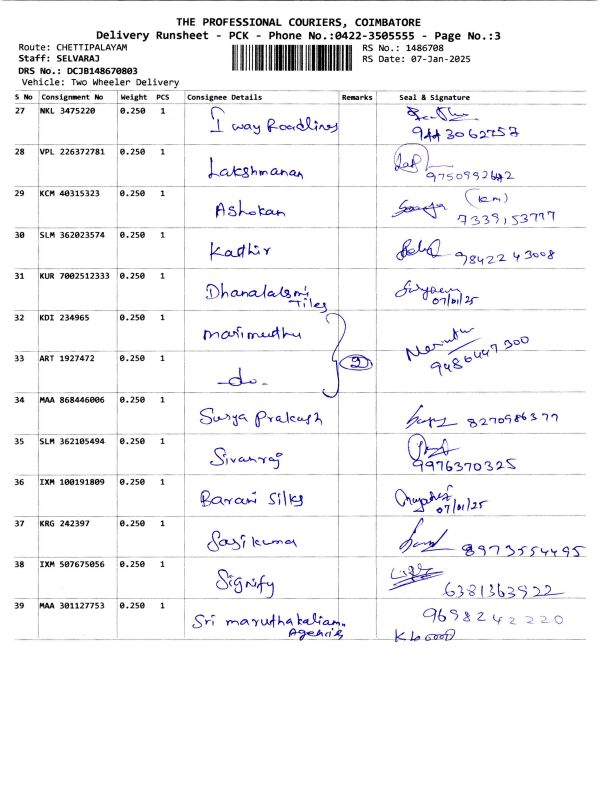 THE PROFESSIONAL COURIERS, COIMBATORE
Delivery Runsheet - PCK - Phone No.:0422-3505555 - Page No.:3
Route: CHETTIPALAYAM RS No.: 1486708
Staff: SELVARAJ RS Date: 07-Jan-2025
DRS No.: DCJB148670803
Vehicle: Two Wheeler Delivery
S No Consignment No Weight PCS Consignee Details Remarks Seal & Signature
27 NKL 3475220 0.250 1 I way Roadlines 9443062757
28 VPL 226372781 0.250 1 Lakshmanan
29 KCM 40315323 0.250 1 Ashokan (km) 7339153777
30 SLM 362023574 0.250 1 Kathir 9842243008
31 KUR 7002512333 0.250 1 Dhanalalsmi
Tiles 07/01/25
32 KDI 234965 0.250 1 marimuthu
33 ART 1927472 0.250 1 -do- 2 9486447300
34 MAA 868446006 0.250 1 Surya Prakash 8270986377
35 SLM 362105494 0.250 1 Sivanraj 9976370325
36 IXM 100191809 0.250 1 Barani Silks 07/01/25
37 KRG 242397 0.250 1 Sasikumar 8973554495
38 IXM 507675056 0.250 1 Signify 6381363922
39 MAA 301127753 0.250 1 Sri maruthakaliam. 9698242220
Agencies